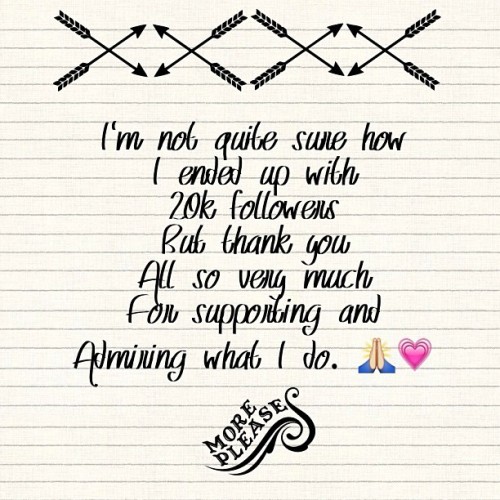 I'm not quite sure how
I ended up with
20k followers
But thank you
All so very much
For supporting and
Admiring what I do. 🙏💗
MORE
PLEASE